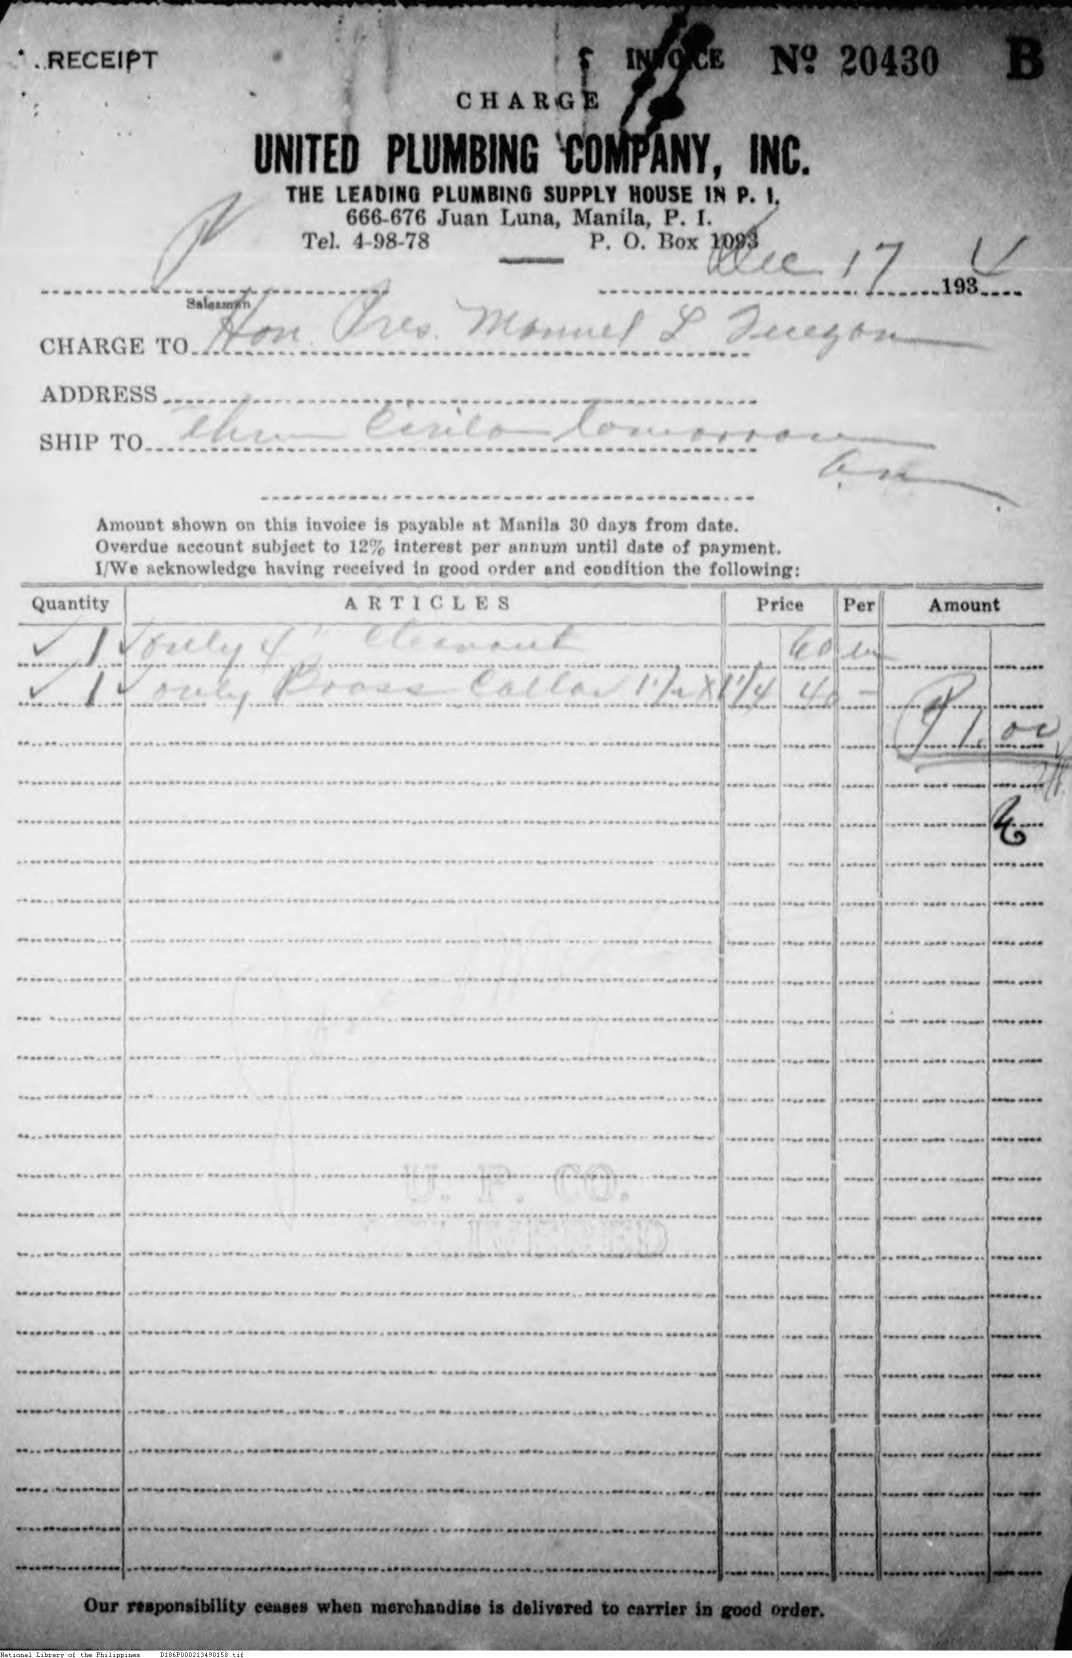 RECEIPT
INVOICE No. 20430 B
CHARGE
UNITED PLUMBING COMPANY, INC.
THE LEADING PLUMBING SUPPLY HOUSE IN P. I.
666-676 Juan Luna, Manila, P. I.
Tel. 4-98-78 P. O. Box 1093
Dec 17 1934
Salesman
CHARGE TO Hon. Pres. Manuel L Quezon
ADDRESS
SHIP TO thru Cirilo tomorrow
Amount shown on this invoice is payable at Manila 30 days from date.
Overdue account subject to 12% interest per annum until date of payment.
I/We acknowledge having received in good order and condition the following:
Quantity ARTICLES Price Per Amount
✓ 1 ✓ only 4" Cleanout 60
✓ 1 ✓ only Brass Collar 1 1/2 X 1 1/4 40 -
₱1.00
U. P. CO.
Our responsibility ceases when merchandise is delivered to carrier in good order.
National Library of the Philippines D186P000213490158.tif